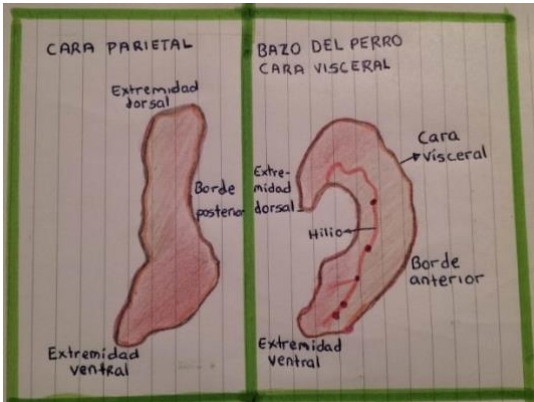 CARA PARIETAL
Extremidad
dorsal
Borde
posterior
Extremidad
ventral
BAZO DEL PERRO
CARA VISCERAL
Cara
vísceral
Extre-
midad
dorsal
Hilio
Borde
anterior
Extremidad
ventral